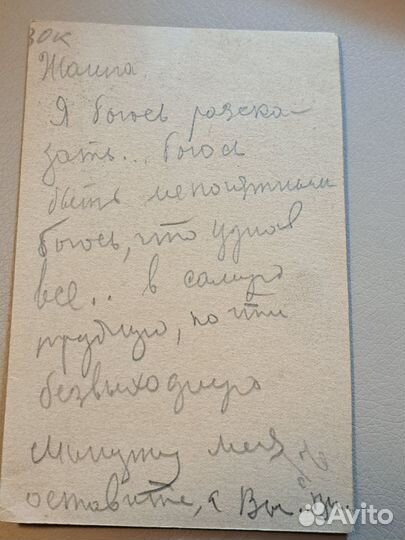 30к
Жанна.
Я боюсь расска-
зать... боюсь
быть непонятным
боюсь, что узнав
все.. в самую
трудную, почти
безвыходную
минуту меня
оставите, а Вы
Avito